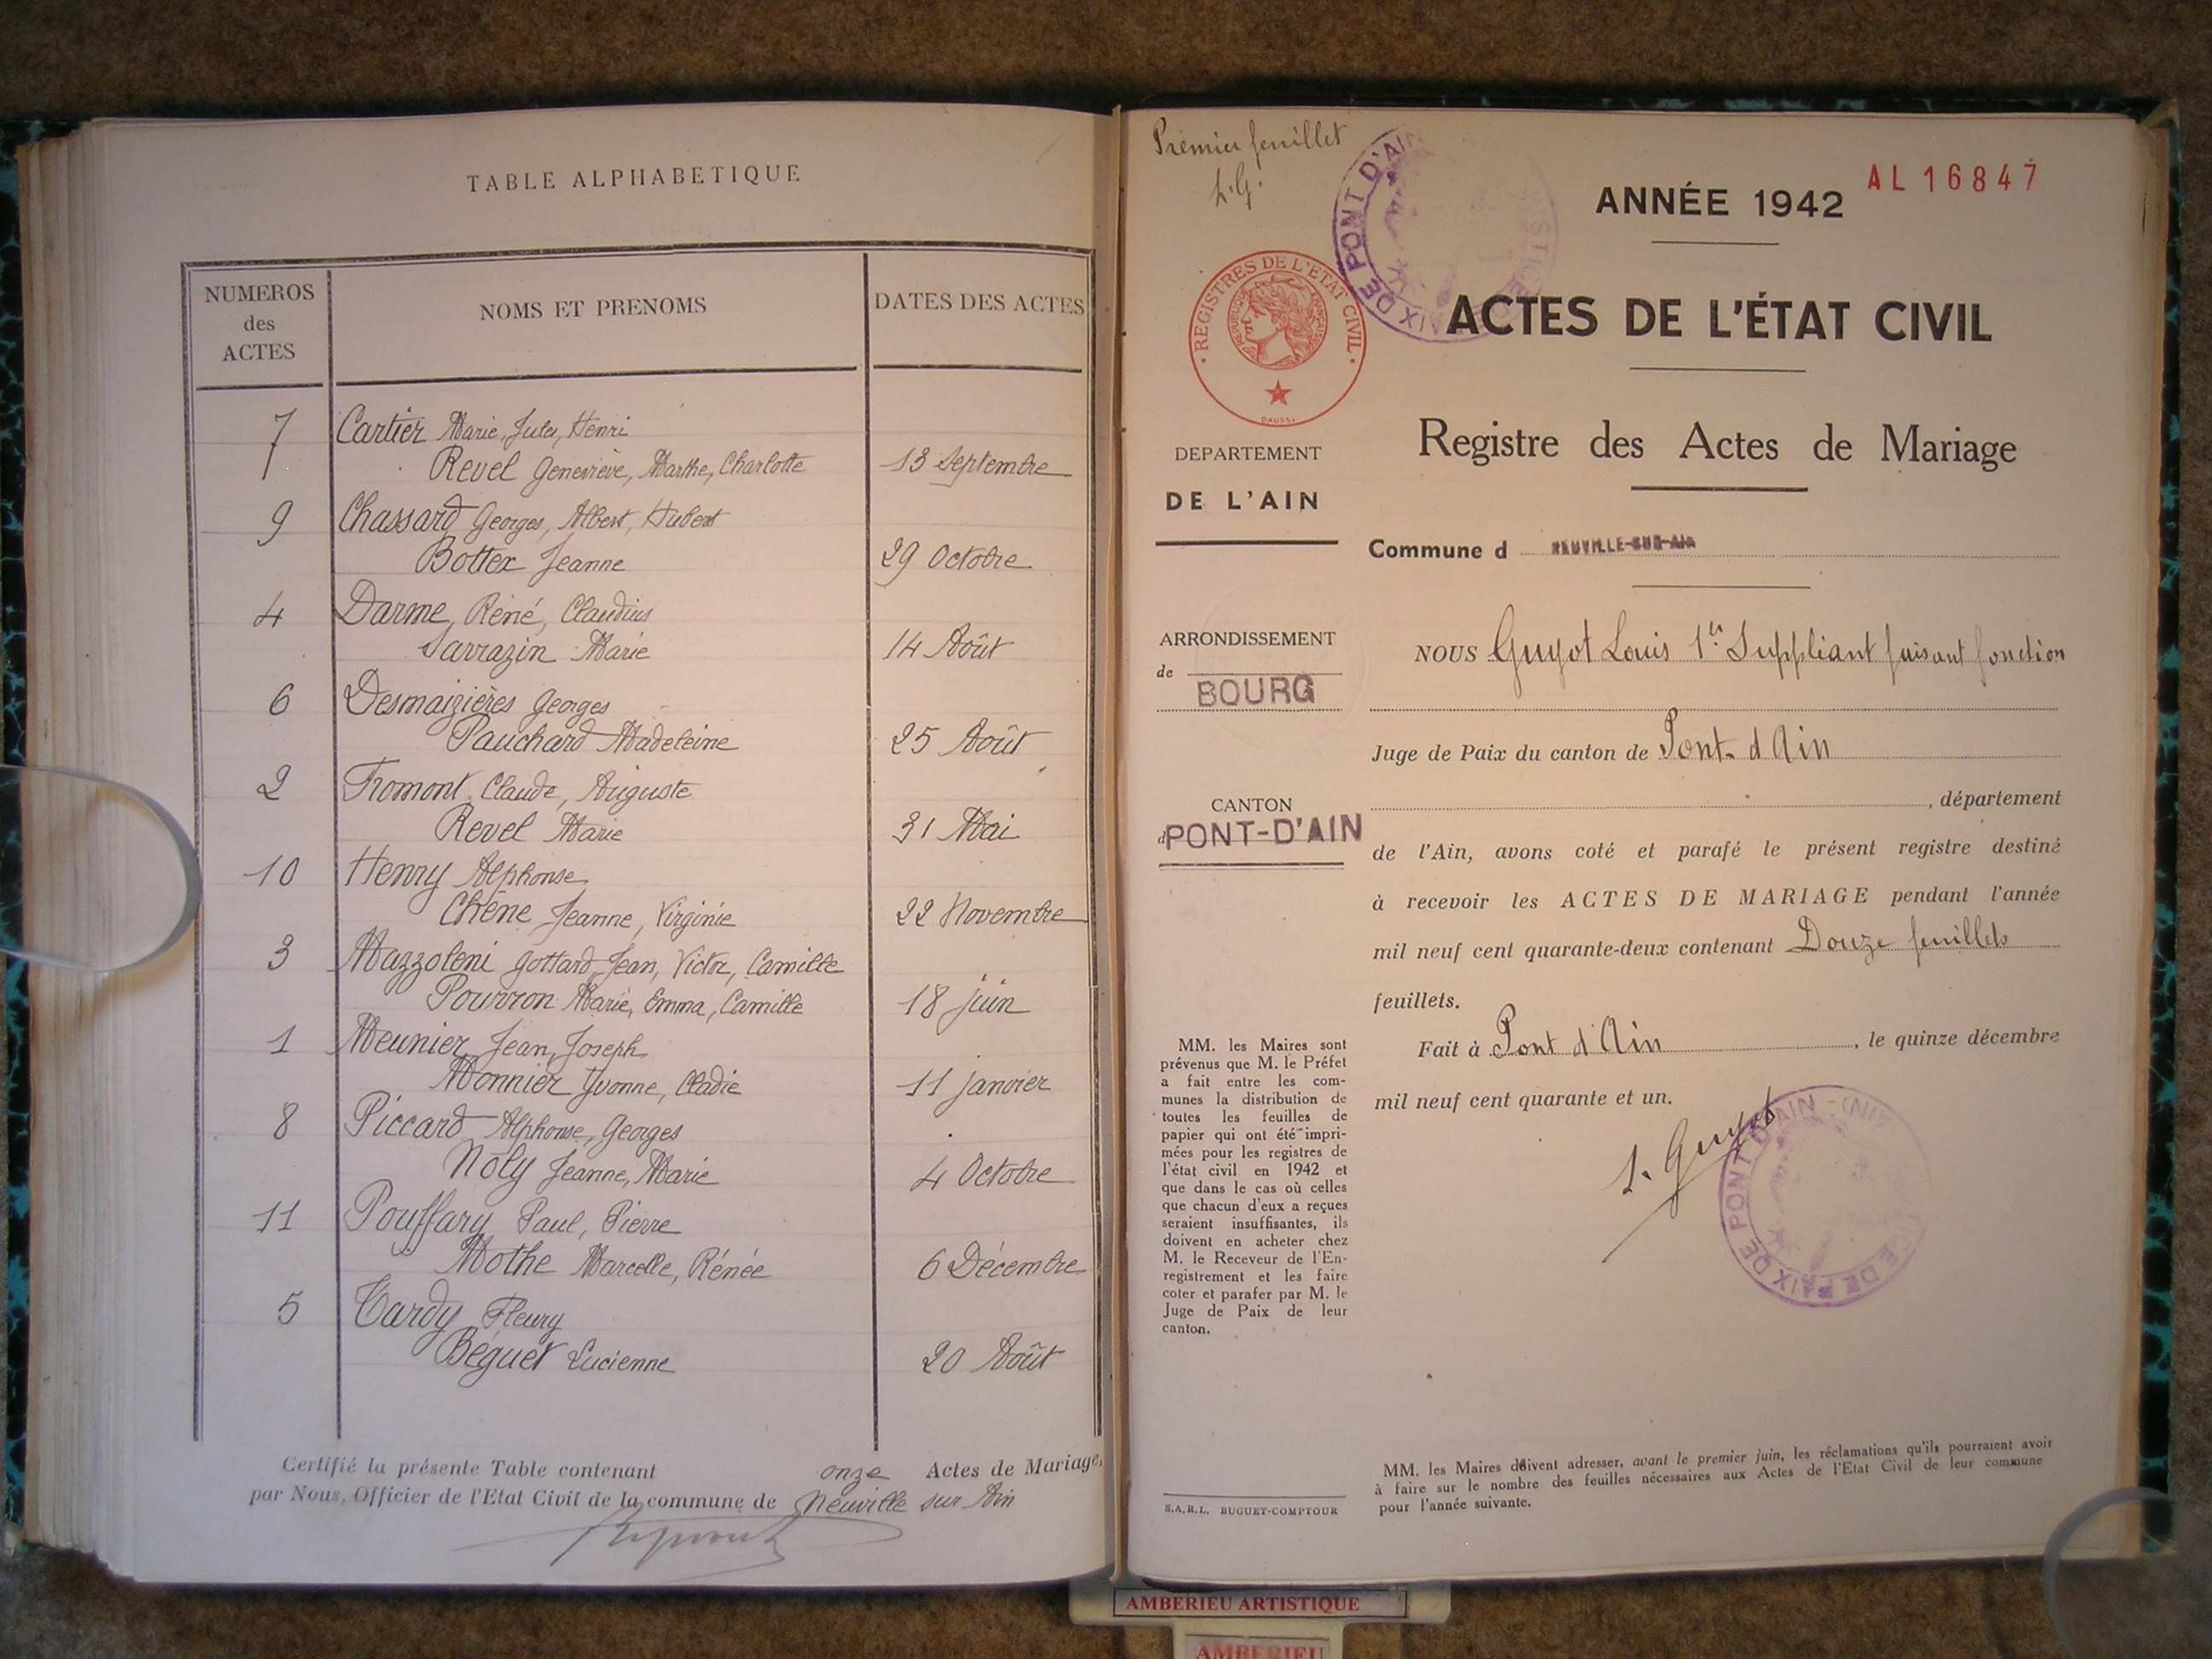 TABLE ALPHABETIQUE
NUMEROS
des
ACTES
NOMS ET PRENOMS
DATES DES ACTES
7 Cartier Marie, Jules, Henri
Revel Geneviève, Marthe, Charlotte 13 Septembre
9 Chassard Georges, Albert, Hubert
Botter Jeanne 29 Octobre
4 Darme, Réné, Claudius
Sarrazin Marie 14 Août
6 Desmaizières Georges
Pauchard Madeleine 25 Août
2 Fromont Claude, Auguste
Revel Marie 31 Mai
10 Henry Alphonse
Chêne Jeanne, Virginie 22 Novembre
3 Mazzoleni Gottard, Jean, Victor, Camille
Pourron Marie, Emma, Camille 18 juin
1 Meunier Jean, Joseph
Monnier Yvonne, Cladie 11 janvier
8 Piccard Alphonse, Georges
Noly Jeanne, Marie 4 Octobre
11 Pouffary Paul, Pierre
Mothe Marcelle, Rénée 6 Décembre
5 Tardy Fleury
Béguet Lucienne 20 Août
Certifié la présente Table contenant onze Actes de Mariage,
par Nous, Officier de l'Etat Civil de la commune de Neuville sur Ain
Premier feuillet
L.G.
ANNÉE 1942
AL 16847
REGISTRES DE L'ETAT CIVIL
REPUBLIQUE FRANÇAISE
DAUSSI
ACTES DE L'ÉTAT CIVIL
Registre des Actes de Mariage
DEPARTEMENT
DE L'AIN
Commune d NEUVILLE-SUR-AIN
ARRONDISSEMENT
de
BOURG
CANTON
d PONT-D'AIN
NOUS Guyot Louis 1er Suppliant faisant fonction
Juge de Paix du canton de Pont-d'Ain
, département
de l'Ain, avons coté et parafé le présent registre destiné
à recevoir les ACTES DE MARIAGE pendant l'année
mil neuf cent quarante-deux contenant Douze feuillets
feuillets.
Fait à Pont d'Ain, le quinze décembre
mil neuf cent quarante et un.
L. Guyot
MM. les Maires sont
prévenus que M. le Préfet
a fait entre les com-
munes la distribution de
toutes les feuilles de
papier qui ont été impri-
mées pour les registres de
l'état civil en 1942 et
que dans le cas où celles
que chacun d'eux a reçues
seraient insuffisantes, ils
doivent en acheter chez
M. le Receveur de l'En-
registrement et les faire
coter et parafer par M. le
Juge de Paix de leur
canton.
S.A.R.L. BUGUET-COMPTOUR
MM. les Maires doivent adresser, avant le premier juin, les réclamations qu'ils pourraient avoir
à faire sur le nombre des feuilles nécessaires aux Actes de l'Etat Civil de leur commune
pour l'année suivante.
AMBERIEU ARTISTIQUE
AMBERIEU